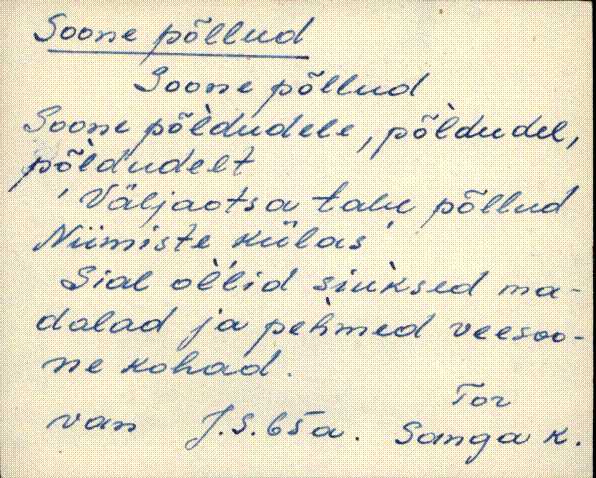 Soone põllud
Soone põllud
Soone põldudele, põldudel,
põldudelt
' Väljaotsa talu põllud
Niimiste külas '
Sial ollid siuksed ma-
dalad ja pehmed veesoo-
ne kohad.
Tor
van J.S. 65a. Sanga k.